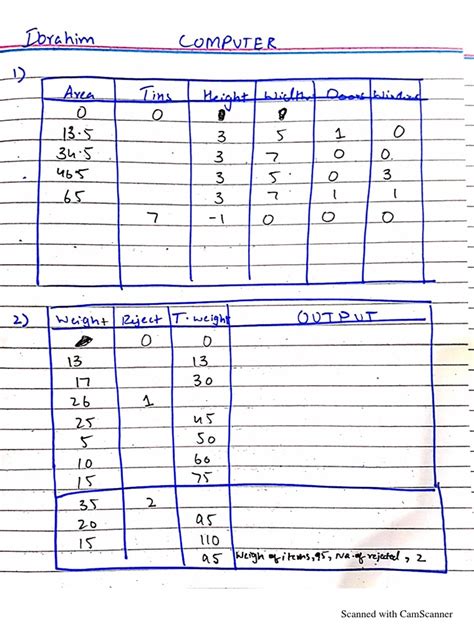 Ibrahim COMPUTER
1)
Area Tins Height Width Doors Window
0 0
13.5 3 5 1 0
34.5 3 7 0 0
46.5 3 5 0 3
65 3 7 1 1
7 -1 0 0 0
2) Weight Reject T. weight OUTPUT
0 0
13 13
17 30
26 1
25 45
5 50
10 60
15 75
35 2
20 95
15 110
95 Weigh of items, 95, No. of rejected, 2
Scanned with CamScanner